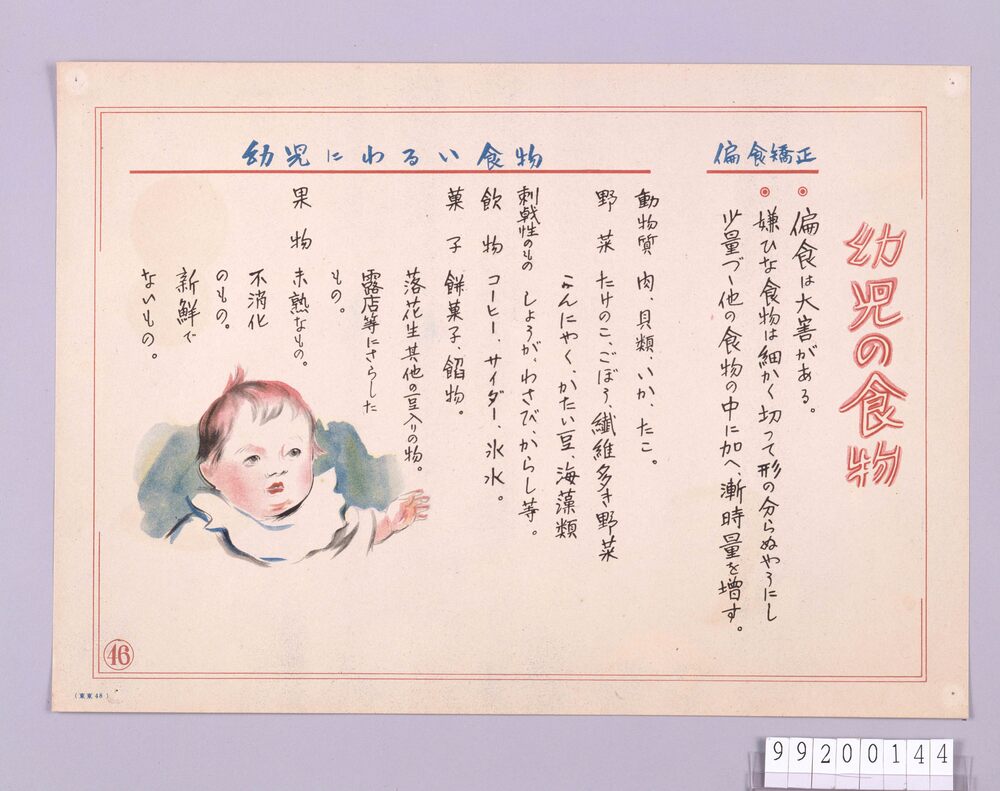 幼児の食物
偏食矯正
◉ 偏食は大害がある。
◉ 嫌ひな食物は細かく切つて形の分らぬやうにし
少量づゝ他の食物の中に加へ、漸時量を増す。
幼児にわるい食物
動物質 肉、貝類、いか、たこ。
野菜 たけのこ、ごぼう、纖維多き野菜
こんにやく、かたい豆、海藻類
刺戟性のもの しょうが、わさび、からし等。
飲物 コーヒー、サイダー、氷水。
菓子 餅菓子、餡物。
落花生其他の豆入りの物。
露店等にさらした
もの。
果物 未熟なもの。
不消化
のもの。
新鮮で
ないもの。
46
(東東48)
99200144